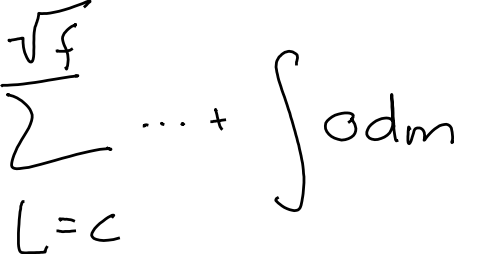 \sum_{L=c}^{\sqrt{f}} \cdots + \int 0 dm